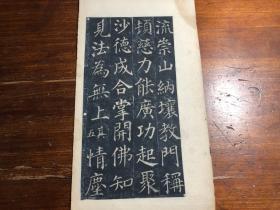 流崇山納壤教門稱
頓慈力能廣功起聚
沙德成合掌開佛知
見法為無上其五情塵